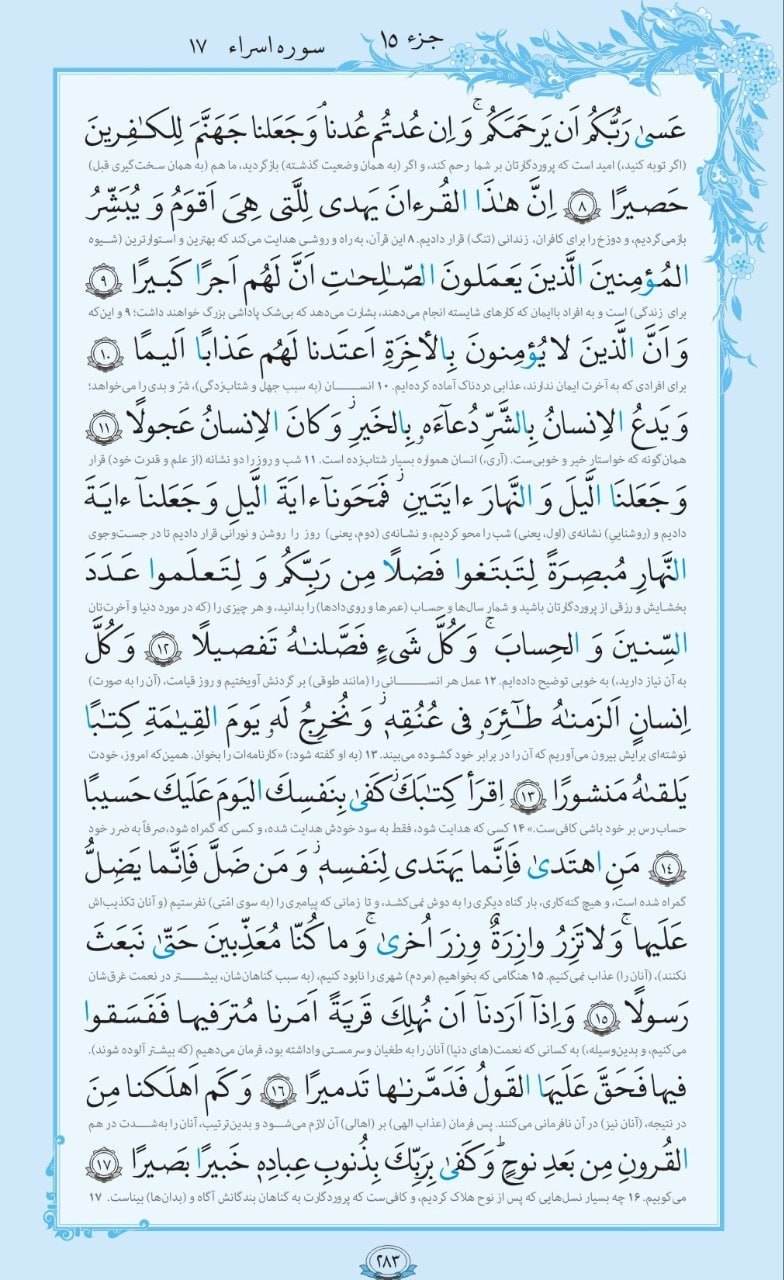 جزء ۱۵
سوره اسراء ۱۷
عَسىٰ رَبُّكُم اَن يَرحَمَكُم ۚ وَ اِن عُدتُم عُدنا ۘ وَ جَعَلنا جَهَنَّمَ لِلكٰفِرينَ
(اگر توبه کنید،) امید است که پروردگارتان بر شما رحم کند، و اگر (به همان وضعیت گذشته) بازگردید، ما هم (به همان سخت‌گیری قبل)
حَصيرًا ﴿۸﴾ اِنَّ هٰذَا القُرءانَ يَهدى لِلَّتى هِىَ اَقوَمُ وَ يُبَشِّرُ
بازمی‌گردیم، و دوزخ را برای کافران، زندانی (تنگ) قرار دادیم. ۸ این قرآن، به راه و روشی هدایت می‌کند که بهترین و استوارترین (شیوه
المُؤمِنينَ الَّذينَ يَعمَلونَ الصّٰلِحٰتِ اَنَّ لَهُم اَجرًا كَبيرًا ﴿۹﴾
برای زندگی) است و به افراد باایمان که کارهای شایسته انجام می‌دهند، بشارت می‌دهد که بی‌شک پاداشی بزرگ خواهند داشت؛ ۹ و این‌که
وَ اَنَّ الَّذينَ لا يُؤمِنونَ بِالأٰخِرَةِ اَعتَدنا لَهُم عَذابًا اَليمًا ﴿۱۰﴾
برای افرادی که به آخرت ایمان ندارند، عذابی دردناک آماده کرده‌ایم. ۱۰ انســـان (به سبب جهل و شتاب‌زدگی)، شرّ و بدی را می‌خواهد؛
وَ يَدعُ الاِنسانُ بِالشَّرِّ دُعآءَهٗ بِالخَيرِ ۖ وَ كانَ الاِنسانُ عَجولًا ﴿۱۱﴾
همان‌گونه که خواستار خیر و خوبی‌ست. (آری،) انسان همواره بسیار شتاب‌زده است. ۱۱ شب و روز را دو نشانه (از علم و قدرت خود) قرار
وَ جَعَلنَا الَّيلَ وَ النَّهارَ ءايَتَينِ ۖ فَمَحَونآ ءايَةَ الَّيلِ وَ جَعَلنآ ءايَةَ
دادیم و (روشناییِ) نشانه‌ی (اول، یعنی) شب را محو کردیم، و نشانه‌ی (دوم، یعنی) روز را روشن و نورانی قرار دادیم تا در جست‌وجوی
النَّهارِ مُبصِرَةً لِتَبتَغوا فَضلًا مِن رَبِّكُم وَ لِتَعلَموا عَدَدَ
بخشایش و رزقی از پروردگارتان باشید و شمار سال‌ها و حساب (عمرها و روی‌دادها) را بدانید، و هر چیزی را (که در مورد دنیا و آخرت‌تان
السِّنينَ وَ الحِسابَ ۚ وَ كُلَّ شَىءٍ فَصَّلنٰهُ تَفصيلًا ﴿۱۲﴾ وَ كُلَّ
به آن نیاز دارید،) به خوبی توضیح داده‌ایم. ۱۲ عمل هر انســـانی را (مانند طوقی) بر گردنش آویختیم و روز قیامت، (آن را به صورت)
اِنسانٍ اَلزَمنٰهُ طٰٓئِرَهٗ فى عُنُقِهٖ ۖ وَ نُخرِجُ لَهٗ يَومَ القِيٰمَةِ كِتٰبًا
نوشته‌ای برایش بیرون می‌آوریم که آن را در برابر خود گشوده می‌بیند. ۱۳ (به او گفته شود:) «کارنامه‌ات را بخوان. همین‌که امروز، خودت
يَلقىٰهُ مَنشورًا ﴿۱۳﴾ اِقرَأ كِتٰبَكَ ۖ كَفىٰ بِنَفسِكَ اليَومَ عَلَيكَ حَسيبًا
حساب‌رس بر خود باشی کافی‌ست.» ۱۴ کسی که هدایت شود، فقط به سود خودش هدایت شده، و کسی که گمراه شود، صرفاً به ضرر خود
﴿۱۴﴾ مَنِ اهتَدىٰ فَاِنَّما يَهتَدى لِنَفسِهٖ ۖ وَ مَن ضَلَّ فَاِنَّما يَضِلُّ
گمراه شده است، و هیچ گنه‌کاری، بار گناه دیگری را به دوش نمی‌کشد، و تا زمانی که پیامبری را (به سوی امّتی) نفرستیم (و آنان تکذیب‌اش
عَلَيها ۚ وَ لا تَزِرُ وازِرَةٌ وِزرَ اُخرىٰ ۚ وَ ما كُنّا مُعَذِّبينَ حَتّىٰ نَبعَثَ
نکنند)، (آنان را) عذاب نمی‌کنیم. ۱۵ هنگامی که بخواهیم (مردم) شهری را نابود کنیم، (به سبب گناهان‌شان، بیشـــتر در نعمت غرق‌شان
رَسولًا ﴿۱۵﴾ وَ اِذآ اَرَدنآ اَن نُهلِكَ قَريَةً اَمَرنا مُترَفيها فَفَسَقوا
می‌کنیم و، بدین‌وسیله،) به کسانی که نعمت(های دنیا) آنان را به طغیان و سرمستی واداشته بود، فرمان می‌دهیم (که بیشتر آلوده شوند).
فيها فَحَقَّ عَلَيهَا القَولُ فَدَمَّرنٰها تَدميرًا ﴿۱۶﴾ وَ كَم اَهلَكنا مِنَ
در نتیجه، (آنان نیز) در آن نافرمانی می‌کنند. پس فرمان (عذاب الهی) بر (اهالی) آن لازم می‌شود و بدین‌ترتیب، آنان را به‌شـــدت در هم
القُرونِ مِن بَعدِ نوحٍ ۗ وَ كَفىٰ بِرَبِّكَ بِذُنوبِ عِبادِهٖ خَبيرًا بَصيرًا ﴿۱۷﴾
می‌کوبیم. ۱۶ چه بسیار نسل‌هایی که پس از نوح هلاک کردیم، و کافی‌ست که پروردگارت به گناهان بندگانش آگاه و (بدان‌ها) بیناست. ۱۷
۲۸۳